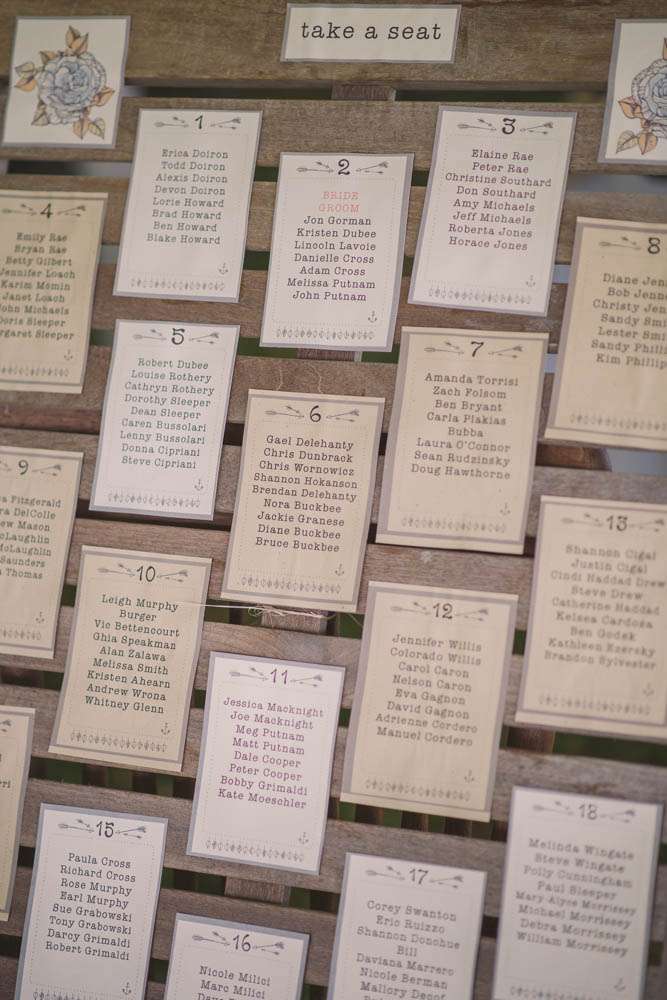 take a seat
1
Erica Doiron
Todd Doiron
Alexis Doiron
Devon Doiron
Lorie Howard
Brad Howard
Ben Howard
Blake Howard
2
BRIDE
GROOM
Jon Gorman
Kristen Dubee
Lincoln Lavoie
Danielle Cross
Adam Cross
Melissa Putnam
John Putnam
3
Elaine Rae
Peter Rae
Christine Southard
Don Southard
Amy Michaels
Jeff Michaels
Roberta Jones
Horace Jones
4
Emily Rae
Bryan Rae
Betty Gilbert
Jennifer Loach
Karim Momin
Janet Loach
John Michaels
Doris Sleeper
Sleeper
5
Robert Dubee
Louise Rothery
Cathryn Rothery
Dorothy Sleeper
Dean Sleeper
Caren Bussolari
Lenny Bussolari
Donna Cipriani
Steve Cipriani
6
Gael Delehanty
Chris Dunbrack
Chris Wornowicz
Shannon Hokanson
Brendan Delehanty
Nora Buckbee
Jackie Granese
Diane Buckbee
Bruce Buckbee
7
Amanda Torrisi
Zach Folsom
Ben Bryant
Carla Plakias
Bubba
Laura O'Connor
Sean Rudzinsky
Doug Hawthorne
8
Diane
Bob
Christy
Sandy
Lester
Sandy
Kim
9
Fitzgerald
DelColle
Mason
McLaughlin
McLaughlin
Saunders
Thomas
10
Leigh Murphy
Burger
Vic Bettencourt
Ghia Speakman
Alan Zalawa
Melissa Smith
Kristen Ahearn
Andrew Wrona
Whitney Glenn
11
Jessica Macknight
Joe Macknight
Meg Putnam
Matt Putnam
Dale Cooper
Peter Cooper
Bobby Grimaldi
Kate Moeschler
12
Jennifer Willis
Colorado Willis
Carol Caron
Nelson Caron
Eva Gagnon
David Gagnon
Adrienne Cordero
Manuel Cordero
13
Shannon Cigal
Justin Cigal
Cindi Haddad Drew
Steve Drew
Catherine Haddad
Kelsea Cardosa
Ben Godek
Kathleen Ezersky
Brandon Sylvester
15
Paula Cross
Richard Cross
Rose Murphy
Earl Murphy
Sue Grabowski
Tony Grabowski
Darcy Grimaldi
Robert Grimaldi
16
Nicole Milici
Marc Milici
17
Corey Swanton
Eric Ruizzo
Shannon Donohue
Bill
Daviana Marrero
Nicole Berman
Mallory
18
Melinda Wingate
Steve Wingate
Polly Cunningham
Paul Sleeper
Mary-Alyce Morrissey
Michael Morrissey
Debra Morrissey
William Morrissey